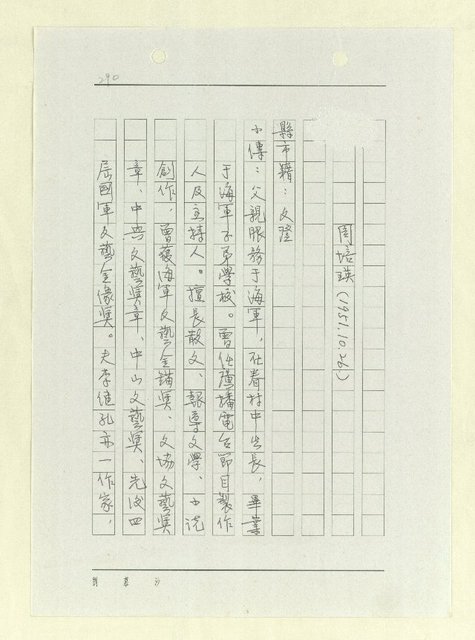 290
周培瑛(1951.10.26)
縣市籍：文登
小傳：父親服務于海軍，在眷村中生長，畢業
于海軍子弟學校。曾任廣播電台節目製作
人及主持人。擅長散文、報導文學、小說
創作，曾獲海軍文藝金錨獎、文協文藝獎
章、中興文藝獎章、中山文藝獎、先後四
屆國軍文藝金像獎。夫李健孔亦一作家，
劉慕沙